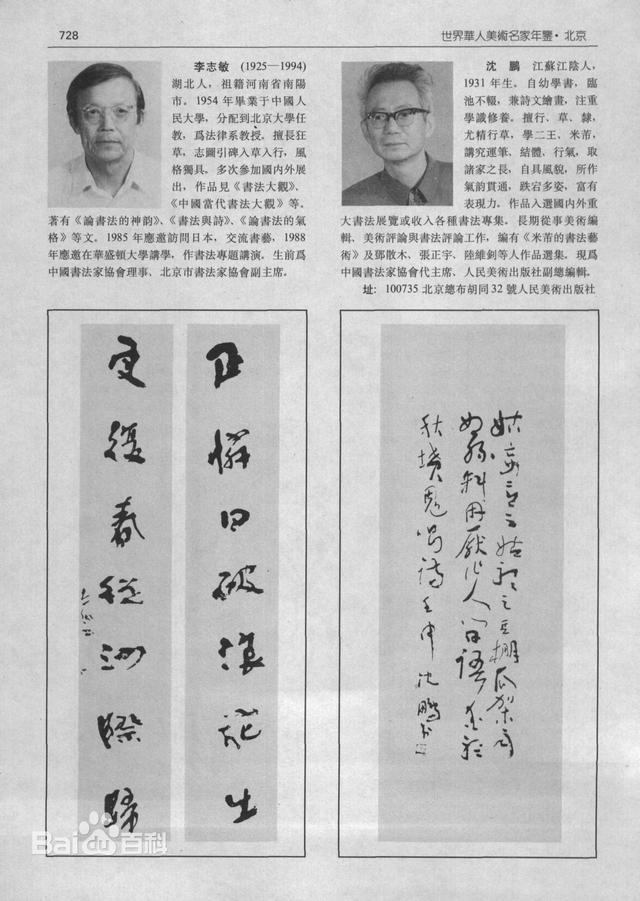 728
世界華人美術名家年鑒·北京
李志敏 (1925—1994)
湖北人，祖籍河南省南陽
市。1954 年畢業于中國人
民大學，分配到北京大學任
教，爲法律系教授。擅長狂
草，志圖引碑入草入行，風
格獨具，多次參加國内外展
出，作品見《書法大觀》、
《中國當代書法大觀》等。
著有《論書法的神韵》、《書法與詩》、《論書法的氣
格》等文。1985 年應邀訪問日本，交流書藝，1988
年應邀在華盛頓大學講學，作書法專題講演。生前爲
中國書法家協會理事、北京市書法家協會副主席。
沈 鵬 江蘇江陰人，
1931 年生。自幼學書，臨
池不輟，兼詩文繪畫，注重
學識修養。擅行、草、隸，
尤精行草，學二王、米芾，
講究運筆、結體、行氣，取
諸家之長，自具風貌，所作
氣韵貫通，跌宕多姿，富有
表現力。作品入選國内外重
大書法展覽或收入各種書法專集。長期從事美術編
輯、美術評論與書法評論工作，編有《米芾的書法藝
術》及鄧散木、張正宇、陸維釗等人作品選集。現爲
中國書法家協會代主席、人民美術出版社副總編輯。
址: 100735 北京總布胡同 32 號人民美術出版社
且憐日破浪花出
更復春從沙際歸
姑妄言之姑聽之豆棚瓜架雨
如絲料應厭作人間語愛聽
秋墳鬼唱詩壬申沈鵬書
Baidu百科